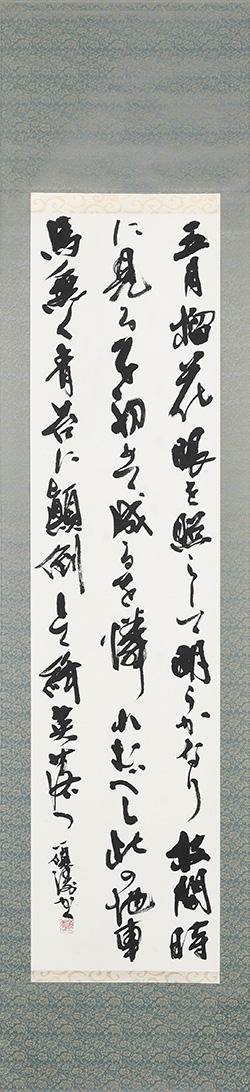 五月榴花眼を照らして明らかなり枝間時
に見る子初めて成るを憐れむべし此の地車
馬無く青苔に顚倒して絳英落つ